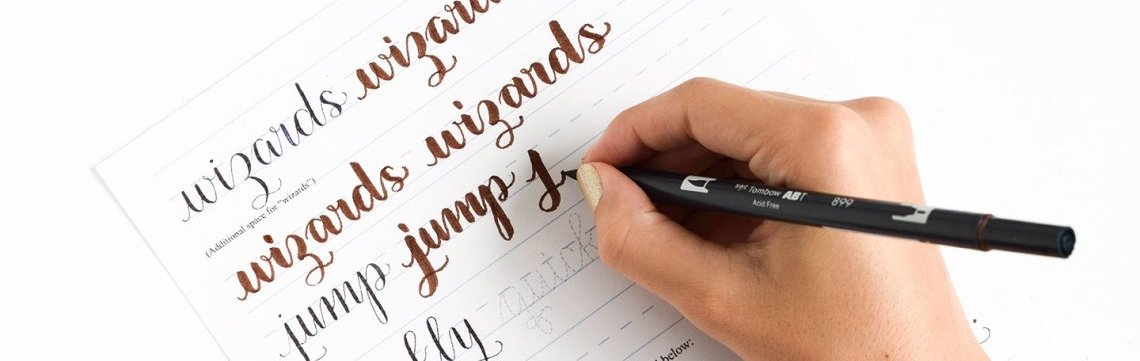 wizards wizards
(Additional space for "wizards")
wizards wizards wizards
jump jump j
quick
below:
Tombow ABT 899
Acid Free